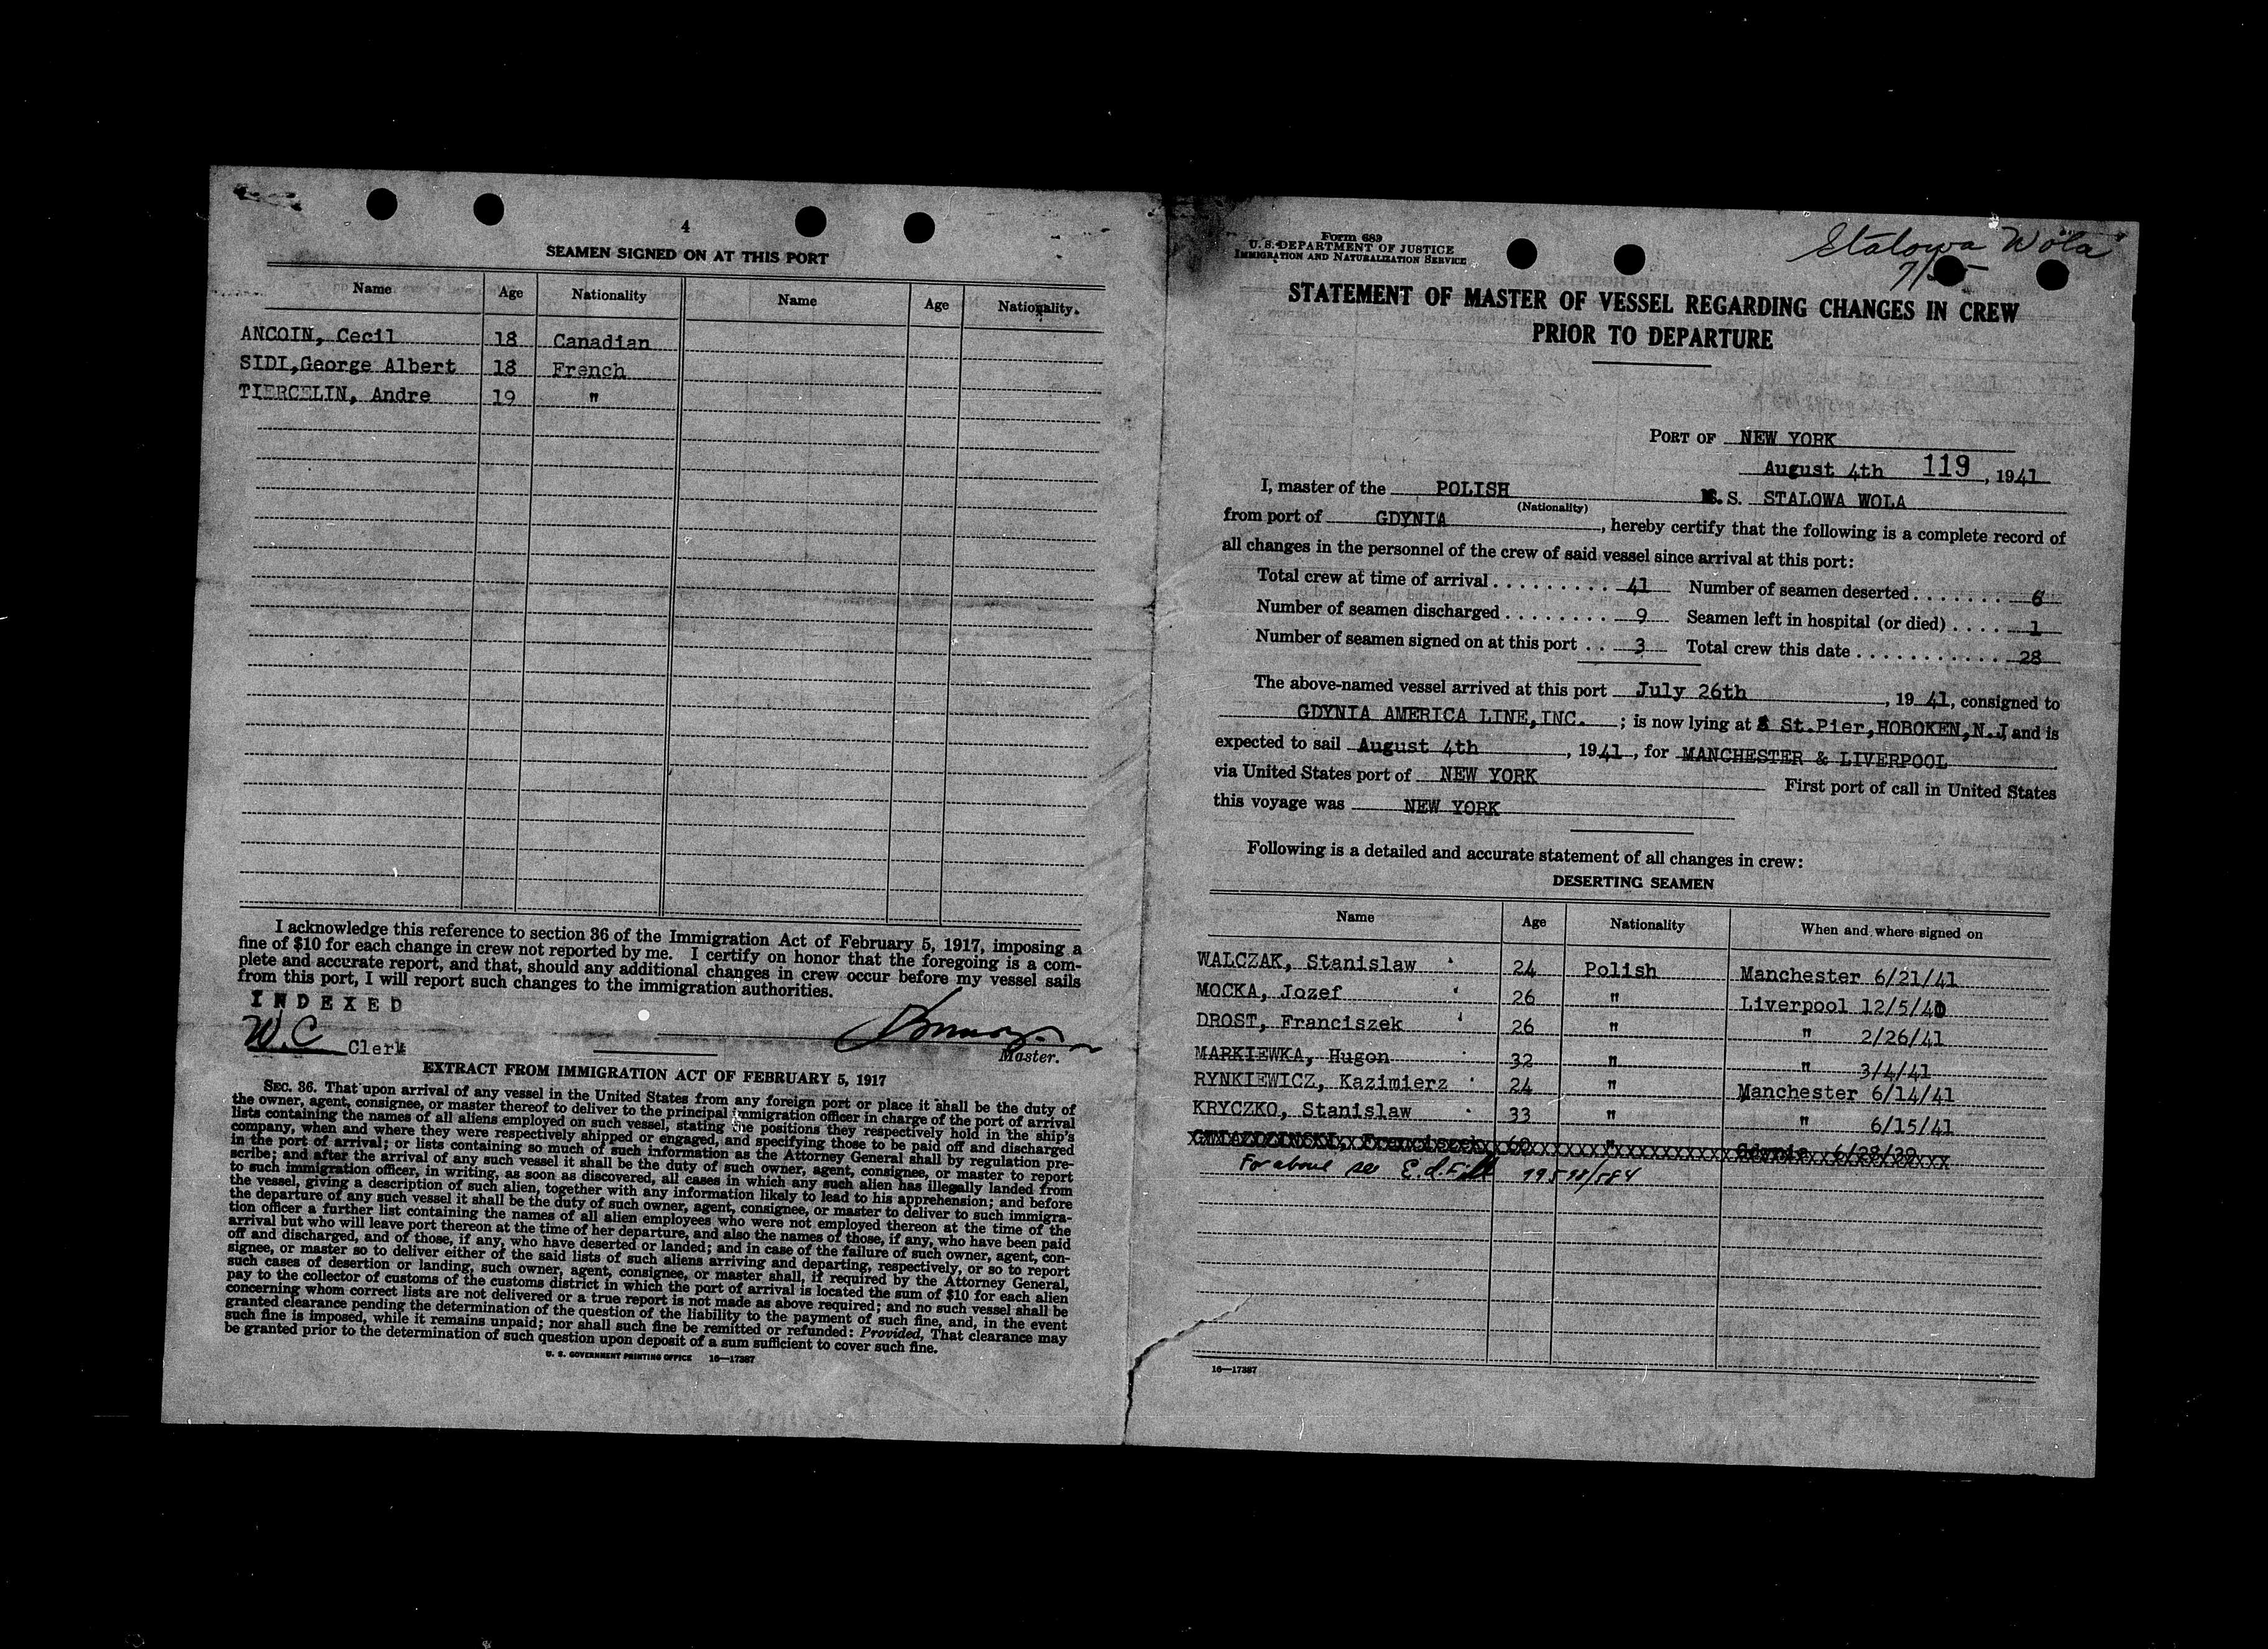 4
SEAMEN SIGNED ON AT THIS PORT
Name Age Nationality Name Age Nationality
ANCOIN, Cecil 18 Canadian
SIDI,George Albert 18 French
TIERCELIN, Andre 19 "
I acknowledge this reference to section 36 of the Immigration Act of February 5, 1917, imposing a
fine of $10 for each change in crew not reported by me. I certify on honor that the foregoing is a com-
plete and accurate report, and that, should any additional changes in crew occur before my vessel sails
from this port, I will report such changes to the immigration authorities.
INDEXED
W.C Clerk
Master.
EXTRACT FROM IMMIGRATION ACT OF FEBRUARY 5, 1917
SEC. 36. That upon arrival of any vessel in the United States from any foreign port or place it shall be the duty of
the owner, agent, consignee, or master thereof to deliver to the principal immigration officer in charge of the port of arrival
lists containing the names of all aliens employed on such vessel, stating the positions they respectively hold in the ship's
company, when and where they were respectively shipped or engaged, and specifying those to be paid off and discharged
in the port of arrival; or lists containing so much of such information as the Attorney General shall by regulation pre-
scribe; and after the arrival of any such vessel it shall be the duty of such owner, agent, consignee, or master to report
to such immigration officer, in writing, as soon as discovered, all cases in which any such alien has illegally landed from
the vessel, giving a description of such alien, together with any information likely to lead to his apprehension; and before
the departure of any such vessel it shall be the duty of such owner, agent, consignee, or master to deliver to such immigra-
tion officer a further list containing the names of all alien employees who were not employed thereon at the time of the
arrival but who will leave port thereon at the time of her departure, and also the names of those, if any, who have been paid
off and discharged, and of those, if any, who have deserted or landed; and in case of the failure of such owner, agent, con-
signee, or master so to deliver either of the said lists of such aliens arriving and departing, respectively, or so to report
such cases of desertion or landing, such owner, agent, consignee, or master shall, if required by the Attorney General,
pay to the collector of customs of the customs district in which the port of arrival is located the sum of $10 for each alien
concerning whom correct lists are not delivered or a true report is not made as above required; and no such vessel shall be
granted clearance pending the determination of the question of the liability to the payment of such fine, and, in the event
such fine is imposed, while it remains unpaid; nor shall such fine be remitted or refunded: Provided, That clearance may
be granted prior to the determination of such question upon deposit of a sum sufficient to cover such fine.
U. S. GOVERNMENT PRINTING OFFICE 16—17387
Form 689
U. S. DEPARTMENT OF JUSTICE
IMMIGRATION AND NATURALIZATION SERVICE
Stalowa Wola
STATEMENT OF MASTER OF VESSEL REGARDING CHANGES IN CREW
PRIOR TO DEPARTURE
PORT OF NEW YORK
August 4th 119, 1941
I, master of the POLISH S. S. STALOWA WOLA
(Nationality)
from port of GDYNIA, hereby certify that the following is a complete record of
all changes in the personnel of the crew of said vessel since arrival at this port:
Total crew at time of arrival 41 Number of seamen deserted 6
Number of seamen discharged 9 Seamen left in hospital (or died) 1
Number of seamen signed on at this port 3 Total crew this date 28
The above-named vessel arrived at this port July 26th, 1941, consigned to
GDYNIA AMERICA LINE,INC. ; is now lying at St.Pier,HOBOKEN,N.J and is
expected to sail August 4th, 1941, for MANCHESTER & LIVERPOOL
via United States port of NEW YORK First port of call in United States
this voyage was NEW YORK
Following is a detailed and accurate statement of all changes in crew:
DESERTING SEAMEN
Name Age Nationality When and where signed on
WALCZAK, Stanislaw 24 Polish Manchester 6/21/41
MOCKA, Jozef 26 " Liverpool 12/5/40
DROST, Franciszek 26 " " 2/26/41
MARKIEWKA, Hugon 32 " " 3/4/41
RYNKIEWICZ, Kazimierz 24 " Manchester 6/14/41
KRYCZKO, Stanislaw 33 " " 6/15/41
Franciszek 60 " Gdynia 6/28/39
For above see E.d.File
16—17387